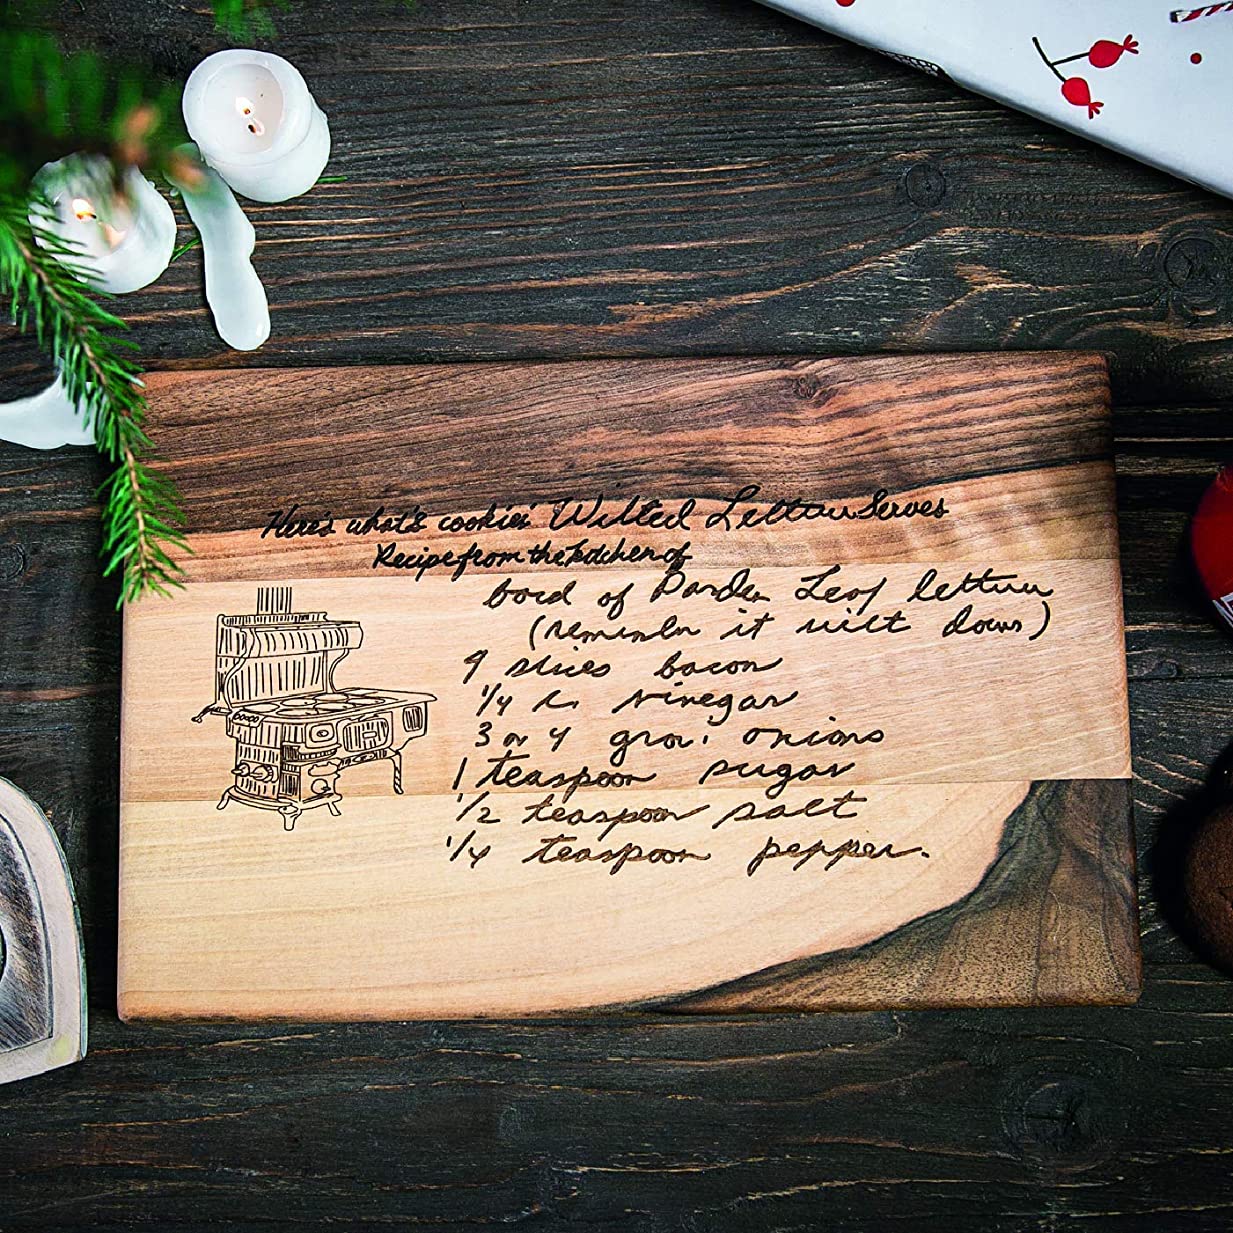 Here's what's cookin' Wilted Lettuce Serves
Recipe from the kitchen of
of Garden Leaf lettuce
(remember it wilt down)
slices bacon
1/4 c. vinegar
3 or 4 onions
1 teaspoon sugar
1/2 teaspoon salt
1/4 teaspoon pepper.